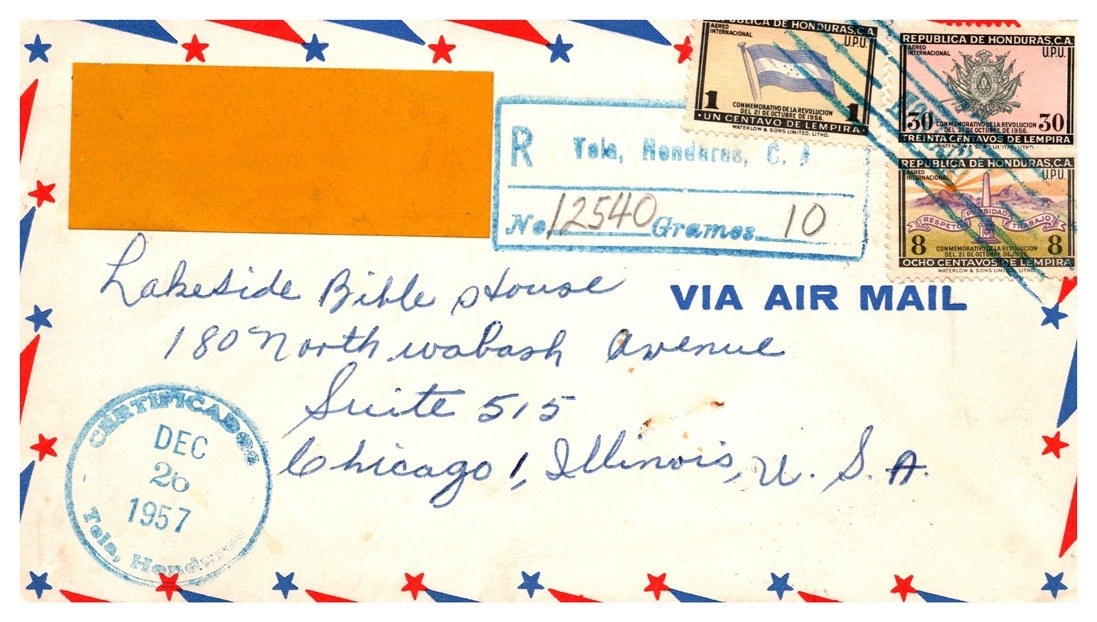 REPUBLICA DE HONDURAS, C.A.
AEREO
INTERNACIONAL
U.P.U.
1 1
CONMEMORATIVO DE LA REVOLUCION
DEL 21 DE OCTUBRE DE 1956.
UN CENTAVO DE LEMPIRA
WATERLOW & SONS LIMITED, LITHO.
REPUBLICA DE HONDURAS, C.A.
AEREO
INTERNACIONAL
U.P.U.
30 30
CONMEMORATIVO DE LA REVOLUCION
DEL 21 DE OCTUBRE DE 1956.
TREINTA CENTAVOS DE LEMPIRA
WATERLOW & SONS LIMITED, LITHO.
REPUBLICA DE HONDURAS, C.A.
AEREO
INTERNACIONAL
U.P.U.
RESPETO PROBIDAD TRABAJO
8 8
CONMEMORATIVO DE LA REVOLUCION
DEL 21 DE OCTUBRE DE 1956.
OCHO CENTAVOS DE LEMPIRA
WATERLOW & SONS LIMITED, LITHO.
R Tela, Honduras, C.
No 12540 Gramos 10
VIA AIR MAIL
Lakeside Bible House
180 North Wabash Avenue
Suite 515
Chicago 1, Illinois, U. S. A.
CERTIFICADOS
DEC
26
1957
Tela, Honduras